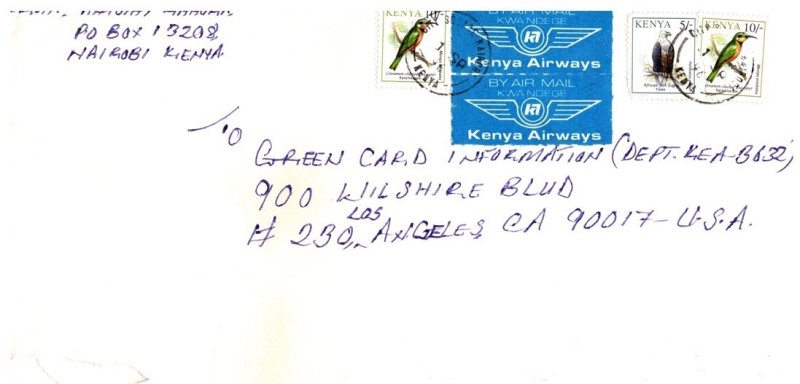 PO BOX 13208
NAIROBI KENYA
KENYA 10/-
BY AIR MAIL
KWA NDEGE
Kenya Airways
BY AIR MAIL
KWA NDEGE
Kenya Airways
KENYA 5/-
African Fish Eagle
KENYA 10/-
KENYA
KENYA
TO
GREEN CARD INFORMATION (DEPT. KEA-B632)
900 WILSHIRE BLVD
# 230, LOS ANGELES, CA 90017-U.S.A.